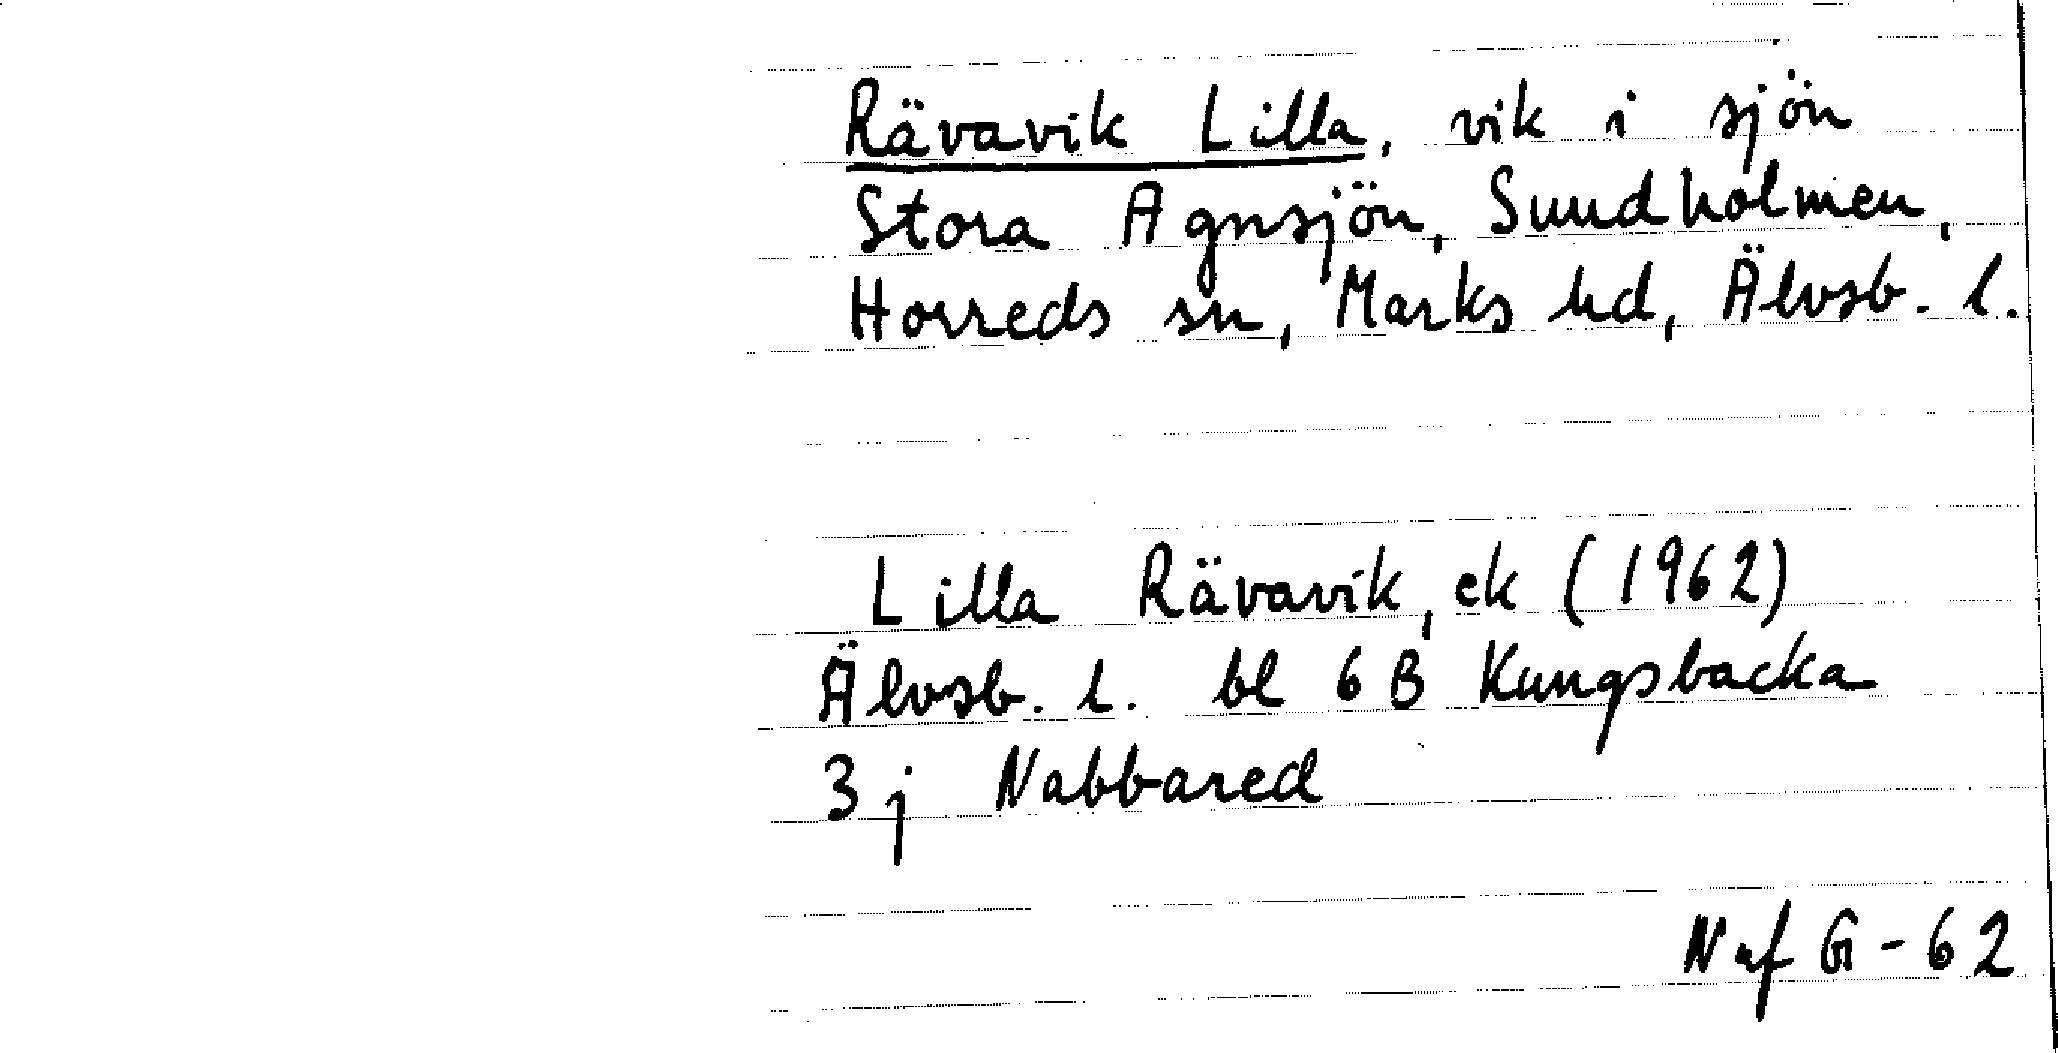 Rävavik Lilla, vik i sjön
Stora Agnsjön, Sundholmen,
Horreds sn, Marks hd, Älvsb. l.
Lilla Rävavik, ek (1962)
Älvsb. l. bl 6 B Kungsbacka
3 j Nabbared
Naf G-62